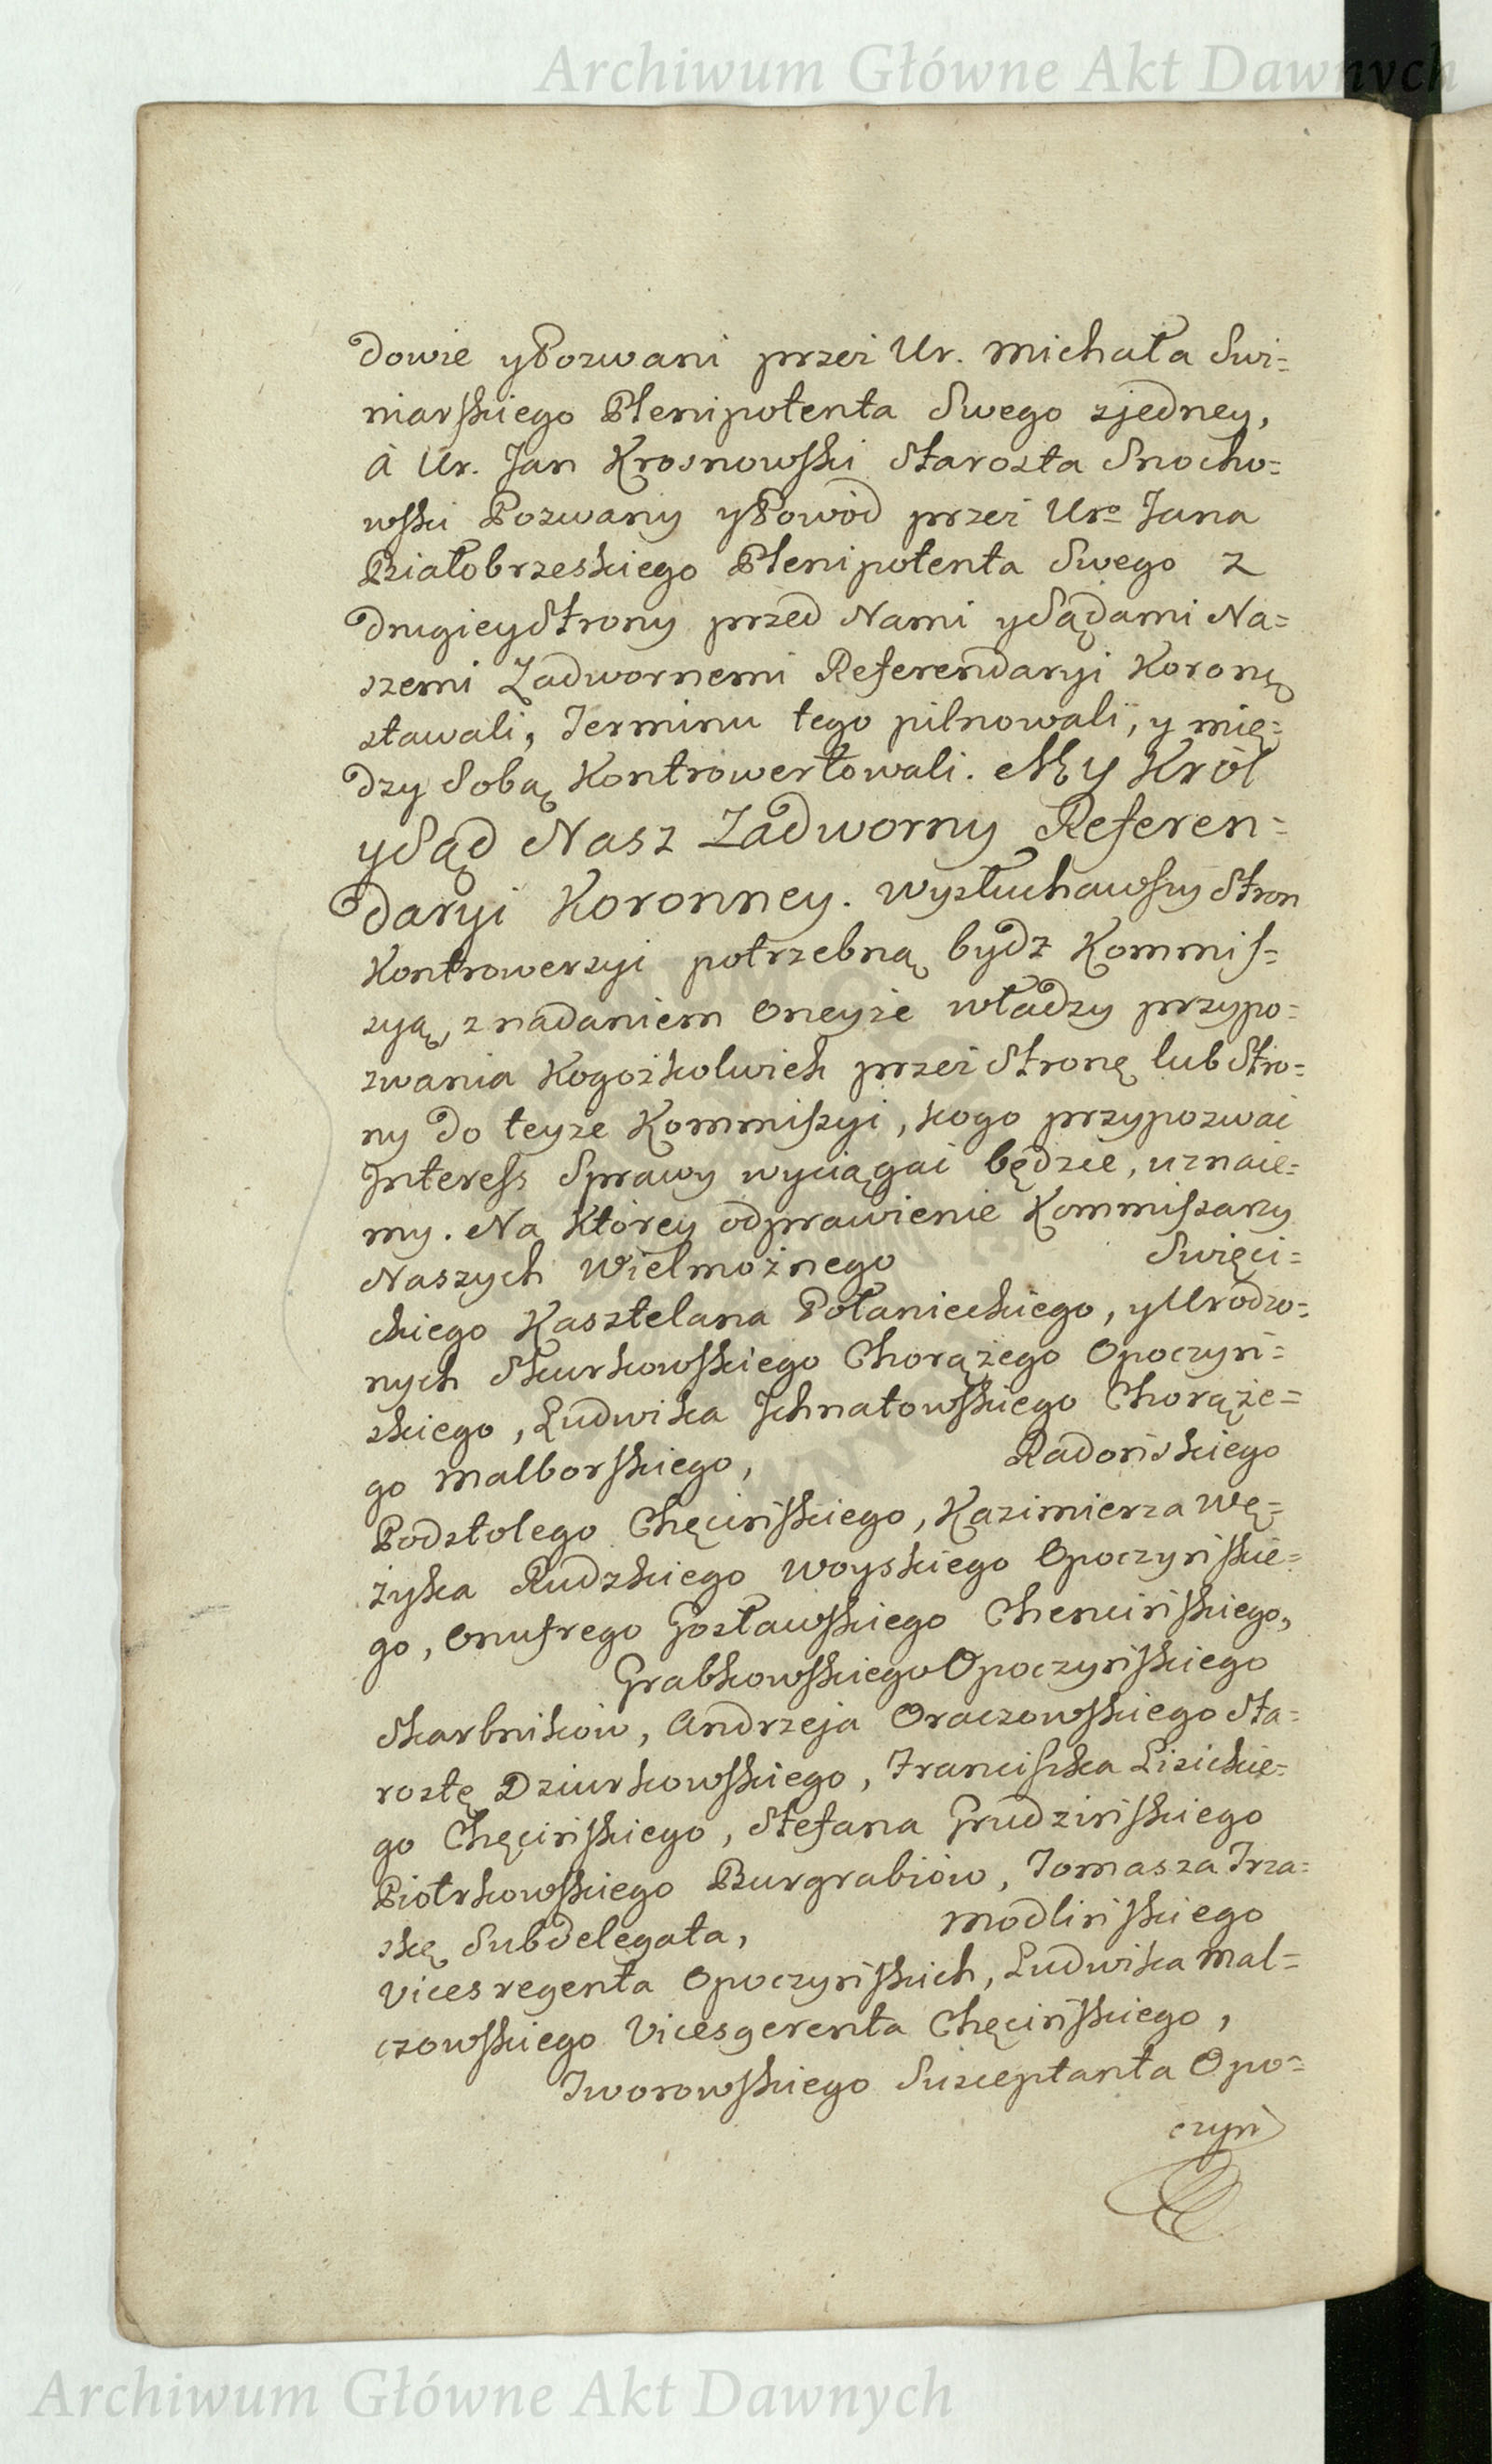 Archiwum Główne Akt Dawnych
dowie y Pozwani przez Ur. Michała Swi=
niarskiego Plenipotenta Swego zjedney,
à Ur. Jan Krosnowski Starosta Snocho=
wski Pozwany y Powód przez Uro Jana
Białobrzeskiego Plenipotenta Swego z
drugiey Strony przed Nami y Sądami Na=
szemi Zadwornemi Referendaryi Koronę
stawali, Terminu tego pilnowali, y mię=
dzy Sobą Kontrowertowali. My Król
y Sąd Nasz Zadworny Referen=
daryi Koronney. Wysłuchawszy Stron
Kontrowersyi potrzebną bydz Kommis=
syą, z nadaniem Oneyże władzy przypo=
zwania Kogożkolwiek przez Stronę lub Stro=
ny do teyże Kommissyi, kogo przypozwać
Interess Sprawy wyciągać będzie, uznaie=
my. Na Którey odprawienie Kommissarzy
Naszych Wielmożnego Swięci=
ckiego Kasztelana Połanieckiego, y Urodzo=
nych Skurkowskiego Chorążego Opoczyń=
skiego, Ludwika Ichnatowskiego Chorąże=
go Malborskiego, Radońskiego
Podstolego Chęcińskiego, Kazimierza Wę=
żyka Rudzkiego Woyskiego Opoczyńskie=
go, Onufrego Gosławskiego Chencińskiego,
Grabkowskiego Opoczyńskiego
Skarbników, Andrzeja Oraczowskiego Sta=
rostę Dziurkowskiego, Franciszka Lisickie=
go Chęcińskiego, Stefana Grudzińskiego
Piotrkowskiego Burgrabiów, Tomasza Trza=
skę Subdelegata, Modlińskiego
Vicesregenta Opoczyńskich, Ludwika Mal=
czowskiego Vicesgerenta Chęcińskiego,
Tworowskiego Susceptanta Opo=
czyń
Archiwum Główne Akt Dawnych